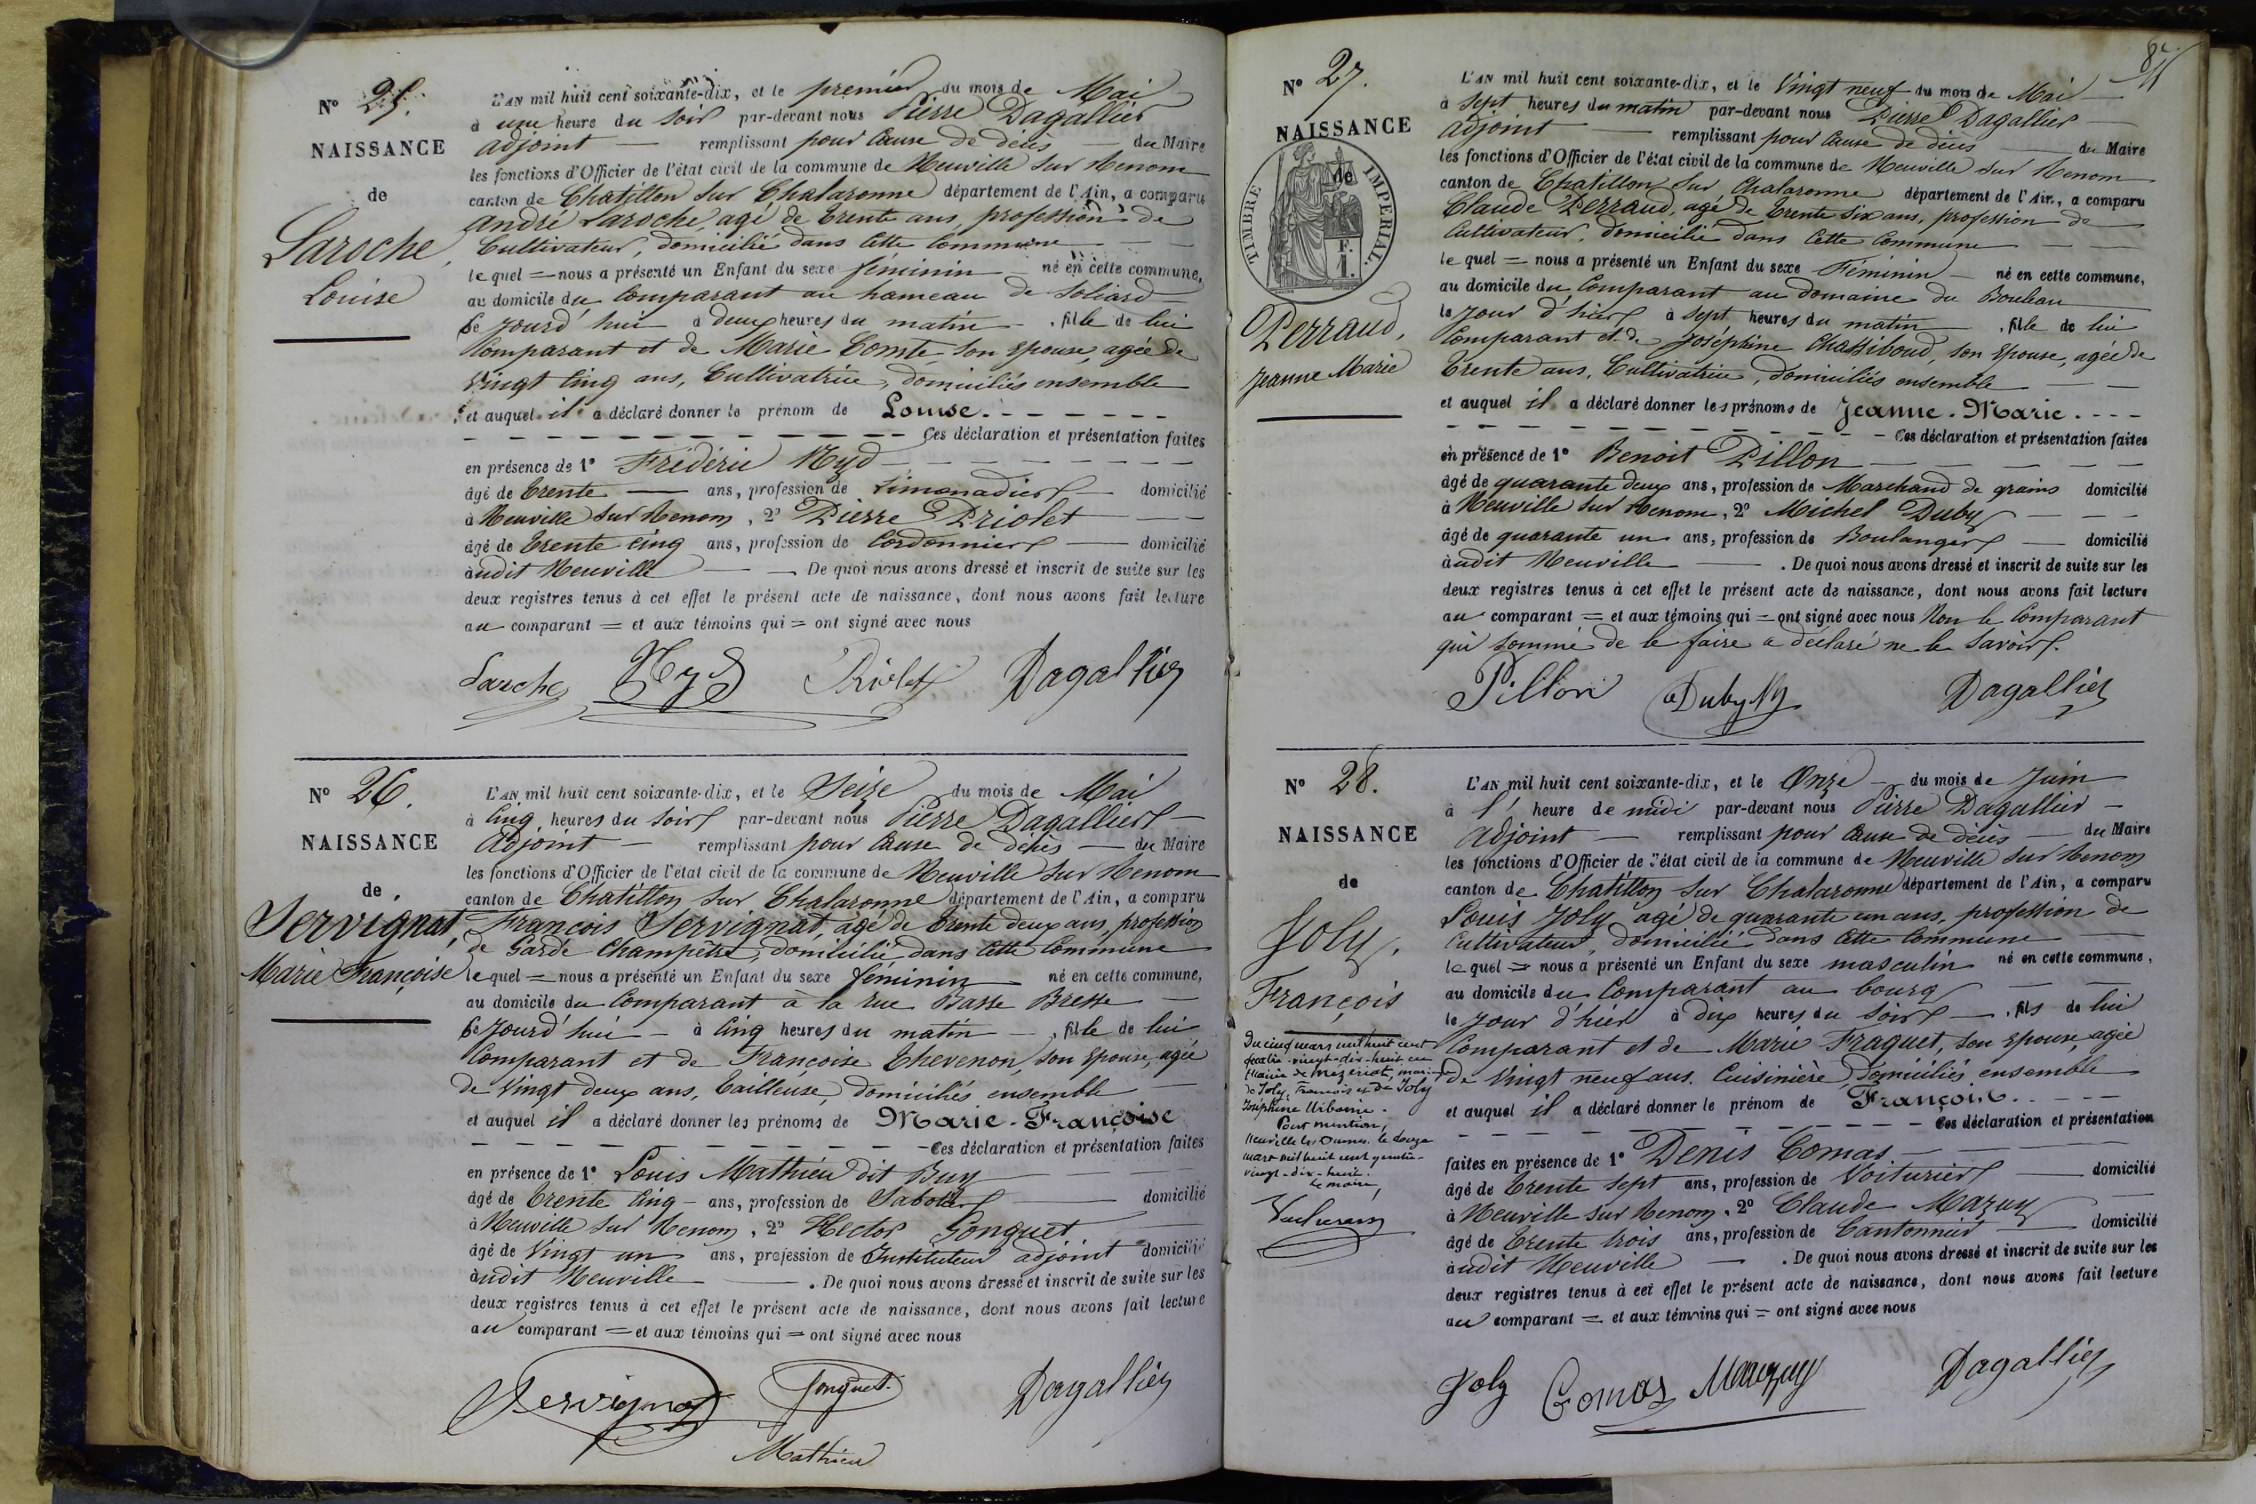 N° 25.
NAISSANCE
de
Laroche,
Louise
L'AN mil huit cent soixante-dix, et le premier du mois de Mai
à une heure du soir par-devant nous Pierre Dagallier
adjoint — remplissant pour Cause de décès — du Maire
les fonctions d'Officier de l'état civil de la commune de Neuville sur Renom
canton de Chatillon sur Chalaronne département de l'Ain, a comparu
André Laroche, agé de trente ans, profession de
Cultivateur, domicilié dans cette Commune
lequel = nous a présenté un Enfant du sexe féminin né en cette commune,
au domicile du Comparant au hameau de Soliard
Ce jourd'hui à deux heures du matin, fille de lui
Comparant et de Marie Comte son épouse, agée de
Vingt cinq ans, Cultivatrice, domiciliés ensemble
et auquel il a déclaré donner le prénom de Louise.
Ces déclaration et présentation faites
en présence de 1° Frédéric Nyd
âgé de trente — ans, profession de Limonadier — domicilié
à Neuville sur Renom, 2° Pierre Priolet
âgé de trente cinq ans, profession de Cordonnier — domicilié
àudit Neuville — De quoi nous avons dressé et inscrit de suite sur les
deux registres tenus à cet effet le présent acte de naissance, dont nous avons fait lecture
au comparant = et aux témoins qui = ont signé avec nous
Laroche Nyd Priolet Dagallier
N° 26.
NAISSANCE
de
Servignat,
Marie Françoise
L'AN mil huit cent soixante-dix, et le Seize du mois de Mai
à cinq heures du soir par-devant nous Pierre Dagallier —
Adjoint — remplissant pour Cause de décès — du Maire
les fonctions d'Officier de l'état civil de la commune de Neuville sur Renom
canton de Chatillon sur Chalaronne département de l'Ain, a comparu
François Servignat, agé de trente deux ans, profession
de Garde Champêtre, domicilié dans cette Commune
lequel = nous a présenté un Enfant du sexe féminin né en cette commune,
au domicile du Comparant à la rue Basse Bresse —
Ce jourd'hui — à cinq heures du matin —, fille de lui
Comparant et de Françoise Thevenon, son épouse, agée
de Vingt deux ans, Tailleuse, domiciliés ensemble
et auquel il a déclaré donner les prénoms de Marie-Françoise
Ces déclaration et présentation faites
en présence de 1° Louis Mathieu dit Buy
âgé de trente cinq — ans, profession de Sabotier domicilié
à Neuville sur Renom, 2° Hector Gonguet
âgé de Vingt un ans, profession de Instituteur adjoint domicilié
àudit Neuville — . De quoi nous avons dressé et inscrit de suite sur les
deux registres tenus à cet effet le présent acte de naissance, dont nous avons fait lecture
au comparant = et aux témoins qui = ont signé avec nous
Servignat Gonguet Dagallier
Mathieu
87
N° 27.
NAISSANCE
de
TIMBRE IMPERIAL.
F. I.
Perraud,
Jeanne Marie
L'AN mil huit cent soixante-dix, et le Vingt neuf du mois de Mai
à sept heures du matin par-devant nous Pierre Dagallier
adjoint — remplissant pour Cause de décès — du Maire
les fonctions d'Officier de l'état civil de la commune de Neuville sur Renom
canton de Chatillon sur Chalaronne département de l'Ain, a comparu
Claude Perraud, agé de trente six ans, profession de
Cultivateur, domicilié dans cette Commune
lequel = nous a présenté un Enfant du sexe Féminin — né en cette commune,
au domicile du Comparant au domaine du Bouleau
le jour d'hier à sept heures du matin, fille de lui
Comparant et de Joséphine Chassiboud, son épouse, agée de
trente ans, Cultivatrice, domiciliés ensemble
et auquel il a déclaré donner les prénoms de Jeanne-Marie.
Ces déclaration et présentation faites
en présence de 1° Benoit Pillon
âgé de quarante deux ans, profession de Marchand de grains domicilié
à Neuville sur Renom, 2° Michel Duby
âgé de quarante un ans, profession de Boulanger — domicilié
àudit Neuville — . De quoi nous avons dressé et inscrit de suite sur les
deux registres tenus à cet effet le présent acte de naissance, dont nous avons fait lecture
au comparant = et aux témoins qui = ont signé avec nous Non le Comparant
qui sommé de le faire a déclaré ne le savoir.
Pillon Duby Dagallier
N° 28.
NAISSANCE
de
Joly,
François
Du cinq mars mil huit cent
quatre-vingt-dix-huit en
Mairie de Mézériat, mariage
de Joly, François et de Joly
Joséphine Urbanie.
Pour mention,
Neuville les Dames le douze
mars mil huit cent quatre-
vingt-dix-huit.
Le maire,
L'AN mil huit cent soixante-dix, et le Onze — du mois de Juin
à l' heure de midi par-devant nous Pierre Dagallier —
adjoint — remplissant pour Cause de décès — du Maire
les fonctions d'Officier de l'état civil de la commune de Neuville sur Renom
canton de Chatillon sur Chalaronne département de l'Ain, a comparu
Louis Joly agé de quarante un ans, profession de
Cultivateur, domicilié dans cette Commune
lequel = nous a présenté un Enfant du sexe masculin né en cette commune,
au domicile du Comparant au bourg
le jour d'hier à dix heures du soir — , fils de lui
Comparant et de Marie Fraguet, son épouse, agée
de Vingt neuf ans. Cuisinière, Domiciliés ensemble
et auquel il a déclaré donner le prénom de François.
Ces déclaration et présentation
faites en présence de 1° Denis Comas
âgé de trente sept ans, profession de Voiturier domicilié
à Neuville sur Renom, 2° Claude Mazuy
âgé de trente trois ans, profession de Cantonnier domicilié
àudit Neuville — . De quoi nous avons dressé et inscrit de suite sur les
deux registres tenus à cet effet le présent acte de naissance, dont nous avons fait lecture
au comparant = et aux témoins qui = ont signé avec nous
Joly Comas Mazuy Dagallier